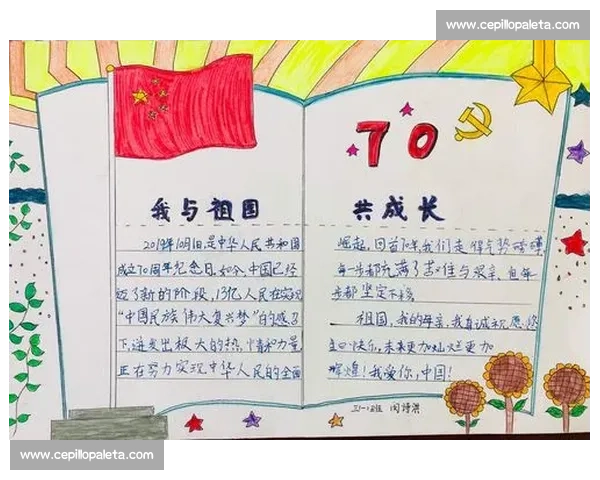 www.cepillopaleta.com
70
我与祖国
共成长
2019年10月1日,是中华人民共和国
成立70周年纪念日,如今,中国已经
迈了新的阶段,13亿人民在实现
“中国民族伟大复兴梦”的感召
下,迸发出极大的热情和力量
正在努力实现中华人民的全面
崛起,回首70年,我们走得气势磅礴,
每一步都充满了艰难与艰辛,但每
步都坚定不移
祖国,我的母亲,我真诚祝愿您
生日快乐,未来更加灿烂更加
辉煌!我爱你,中国!
www.cepillopaleta.com